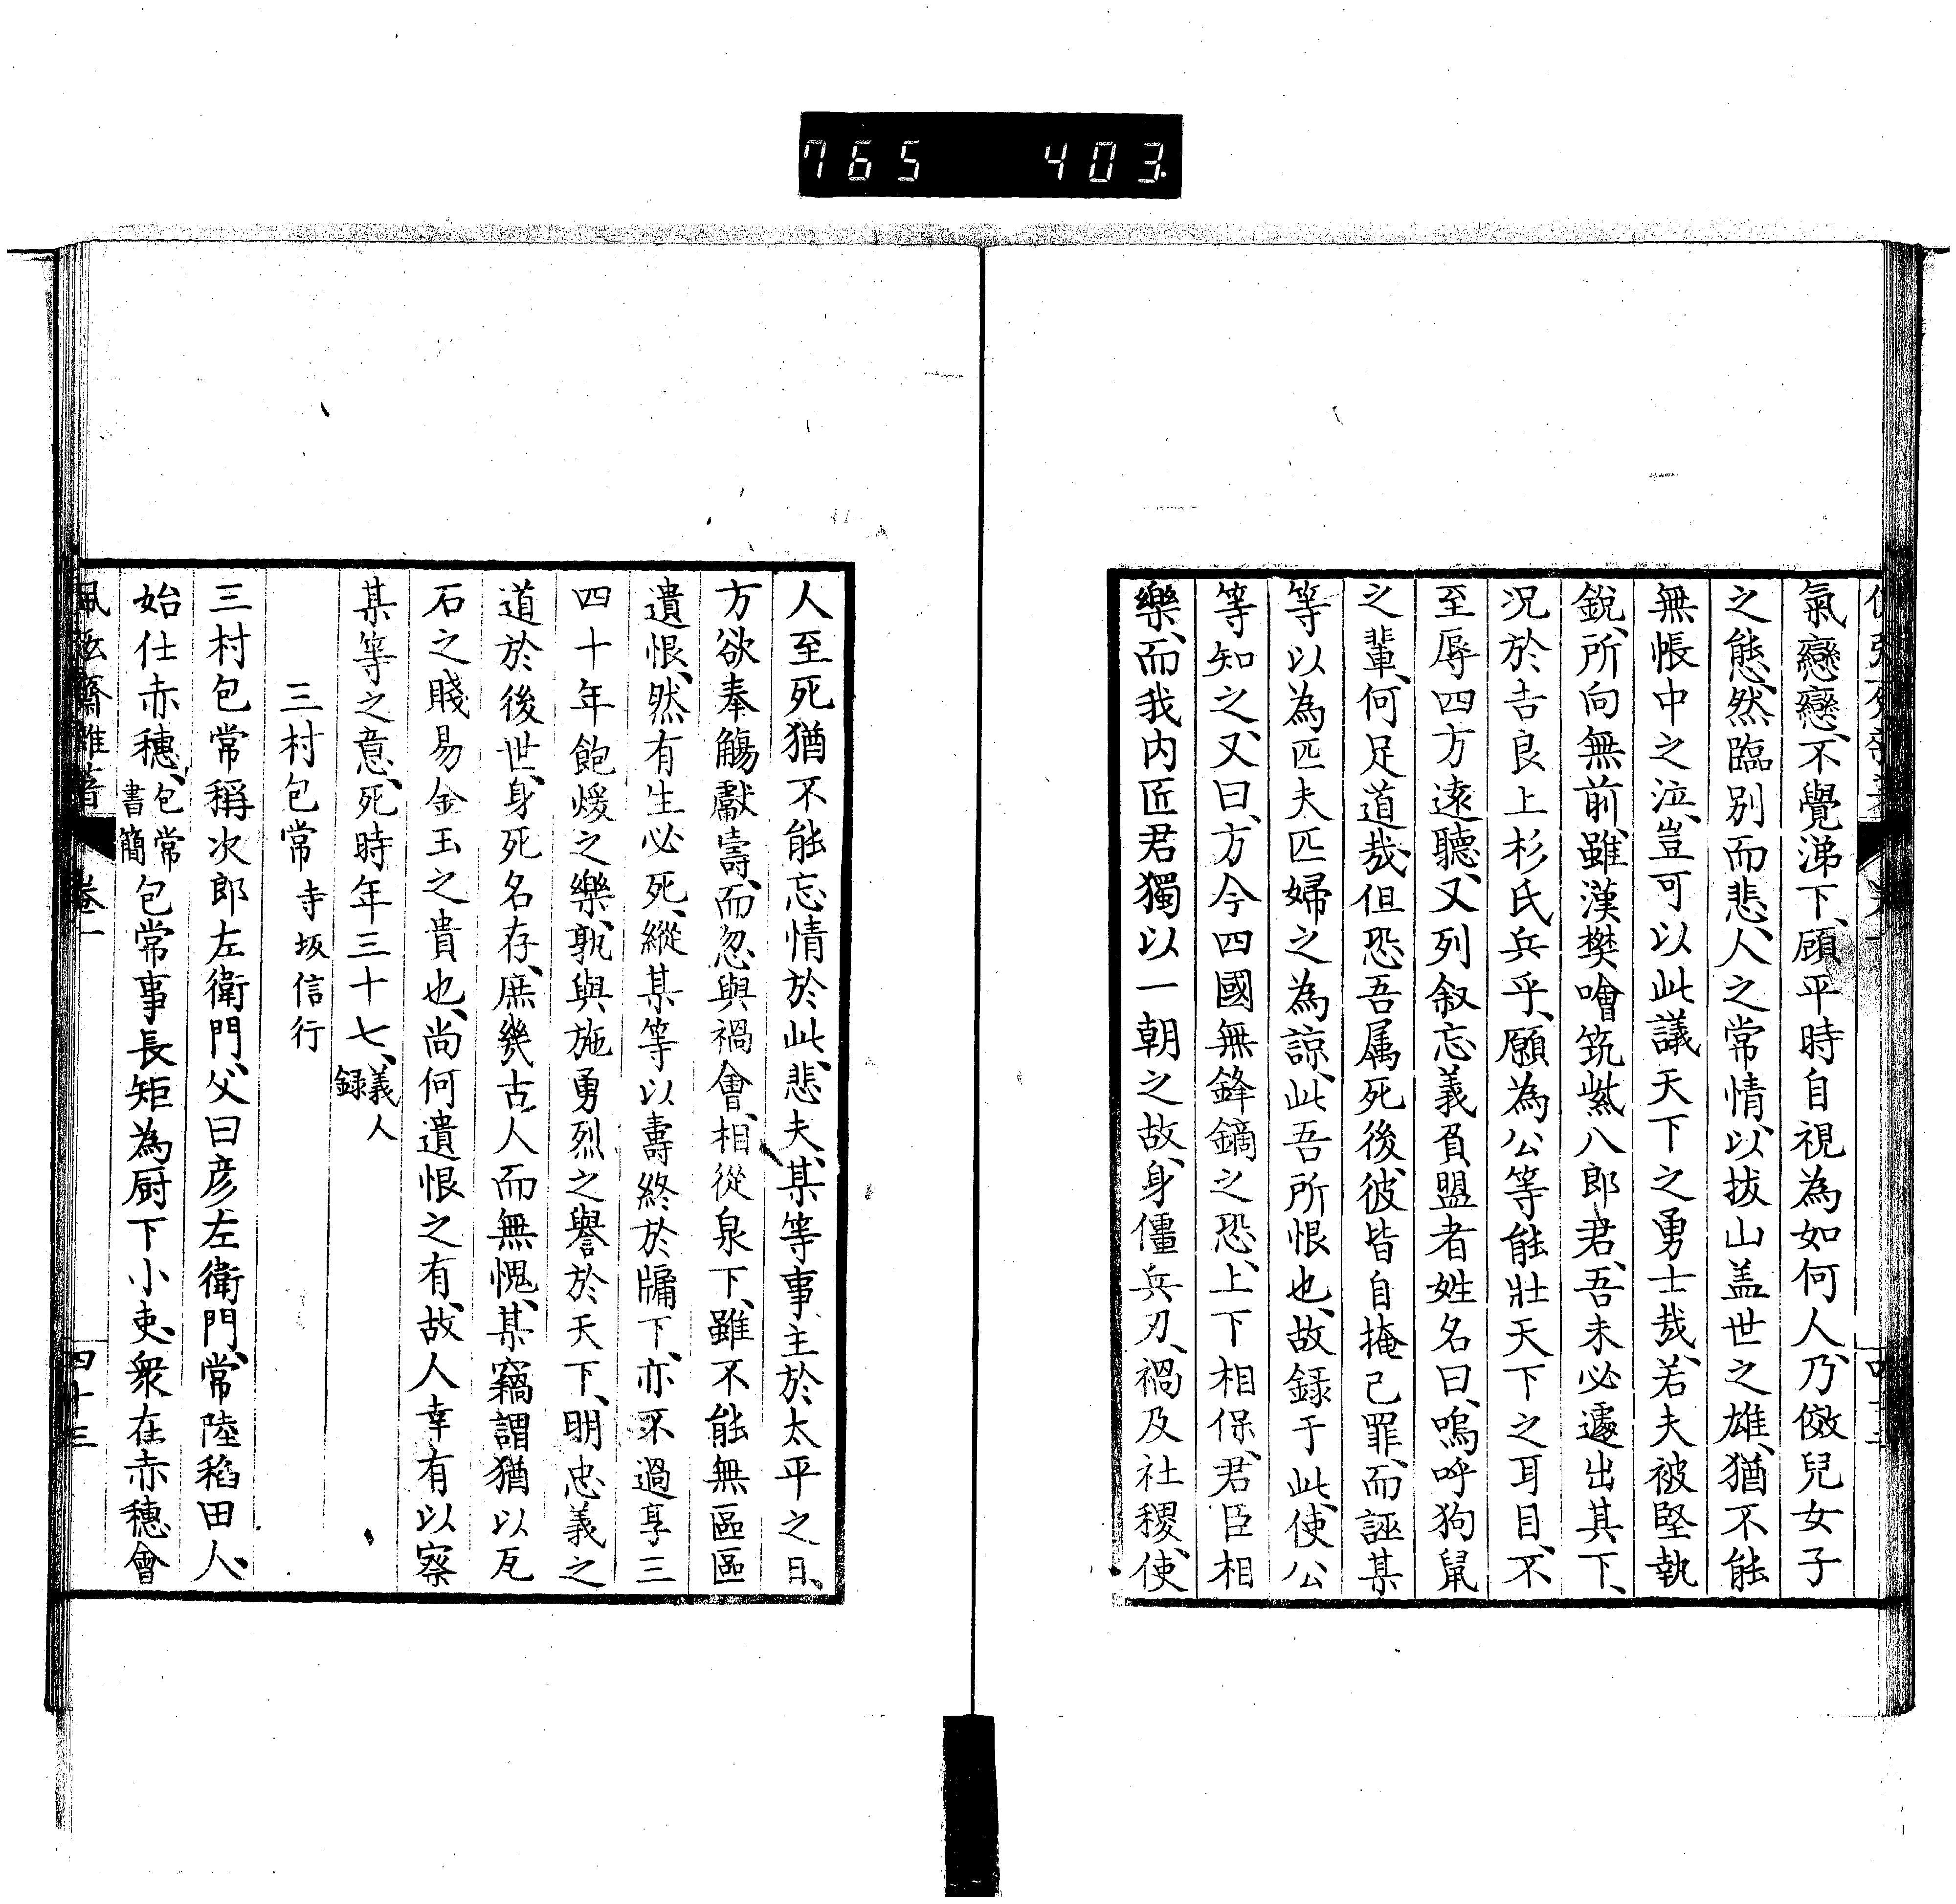 765 403
氣戀戀、不覺涕下、顧平時自視為如何人、乃傚兒女子
之態、然臨別而悲、人之常情、以拔山盖世之雄、猶不能
無帳中之泣、豈可以此議天下之勇士哉、若夫被堅執
銳、所向無前、雖漢樊噲筑紫八郎君、吾未必遽出其下、
況於吉良上杉氏兵乎、願為公等能壯天下之耳目、不
至辱四方遠聽、又列叙忘義負盟者姓名曰、嗚呼狗鼠
之輩、何足道哉、但恐吾属死後、彼皆自掩己罪、而誣某
等以為匹夫匹婦之為諒、此吾所恨也、故録于此、使公
等知之、又曰、方今四國無鋒鏑之恐、上下相保、君臣相
樂、而我内匠君獨以一朝之故、身僵兵刃、禍及社稷、使
人至死猶不能忘情於此、悲夫、某等事主於太平之日、
方欲奉觴獻壽、而忽與禍會、相從泉下、雖不能無區區
遺恨、然有生必死、縱某等以壽終於牖下、亦不過享三
四十年飽煖之樂、孰與施勇烈之譽於天下、明忠義之
道於後世、身死名存、庶幾古人而無愧、某竊謂猶以瓦
石之賤易金玉之貴也、尚何遺恨之有、故人幸有以察
某等之意、死時年三十七、義人録
三村包常 寺坂信行
三村包常稱次郎左衛門、父曰彦左衛門、常陸稻田人、
始仕赤穗、包常書簡包常事長矩為厨下小吏、衆在赤穗會
佩弦齋雜著 卷一 四十三